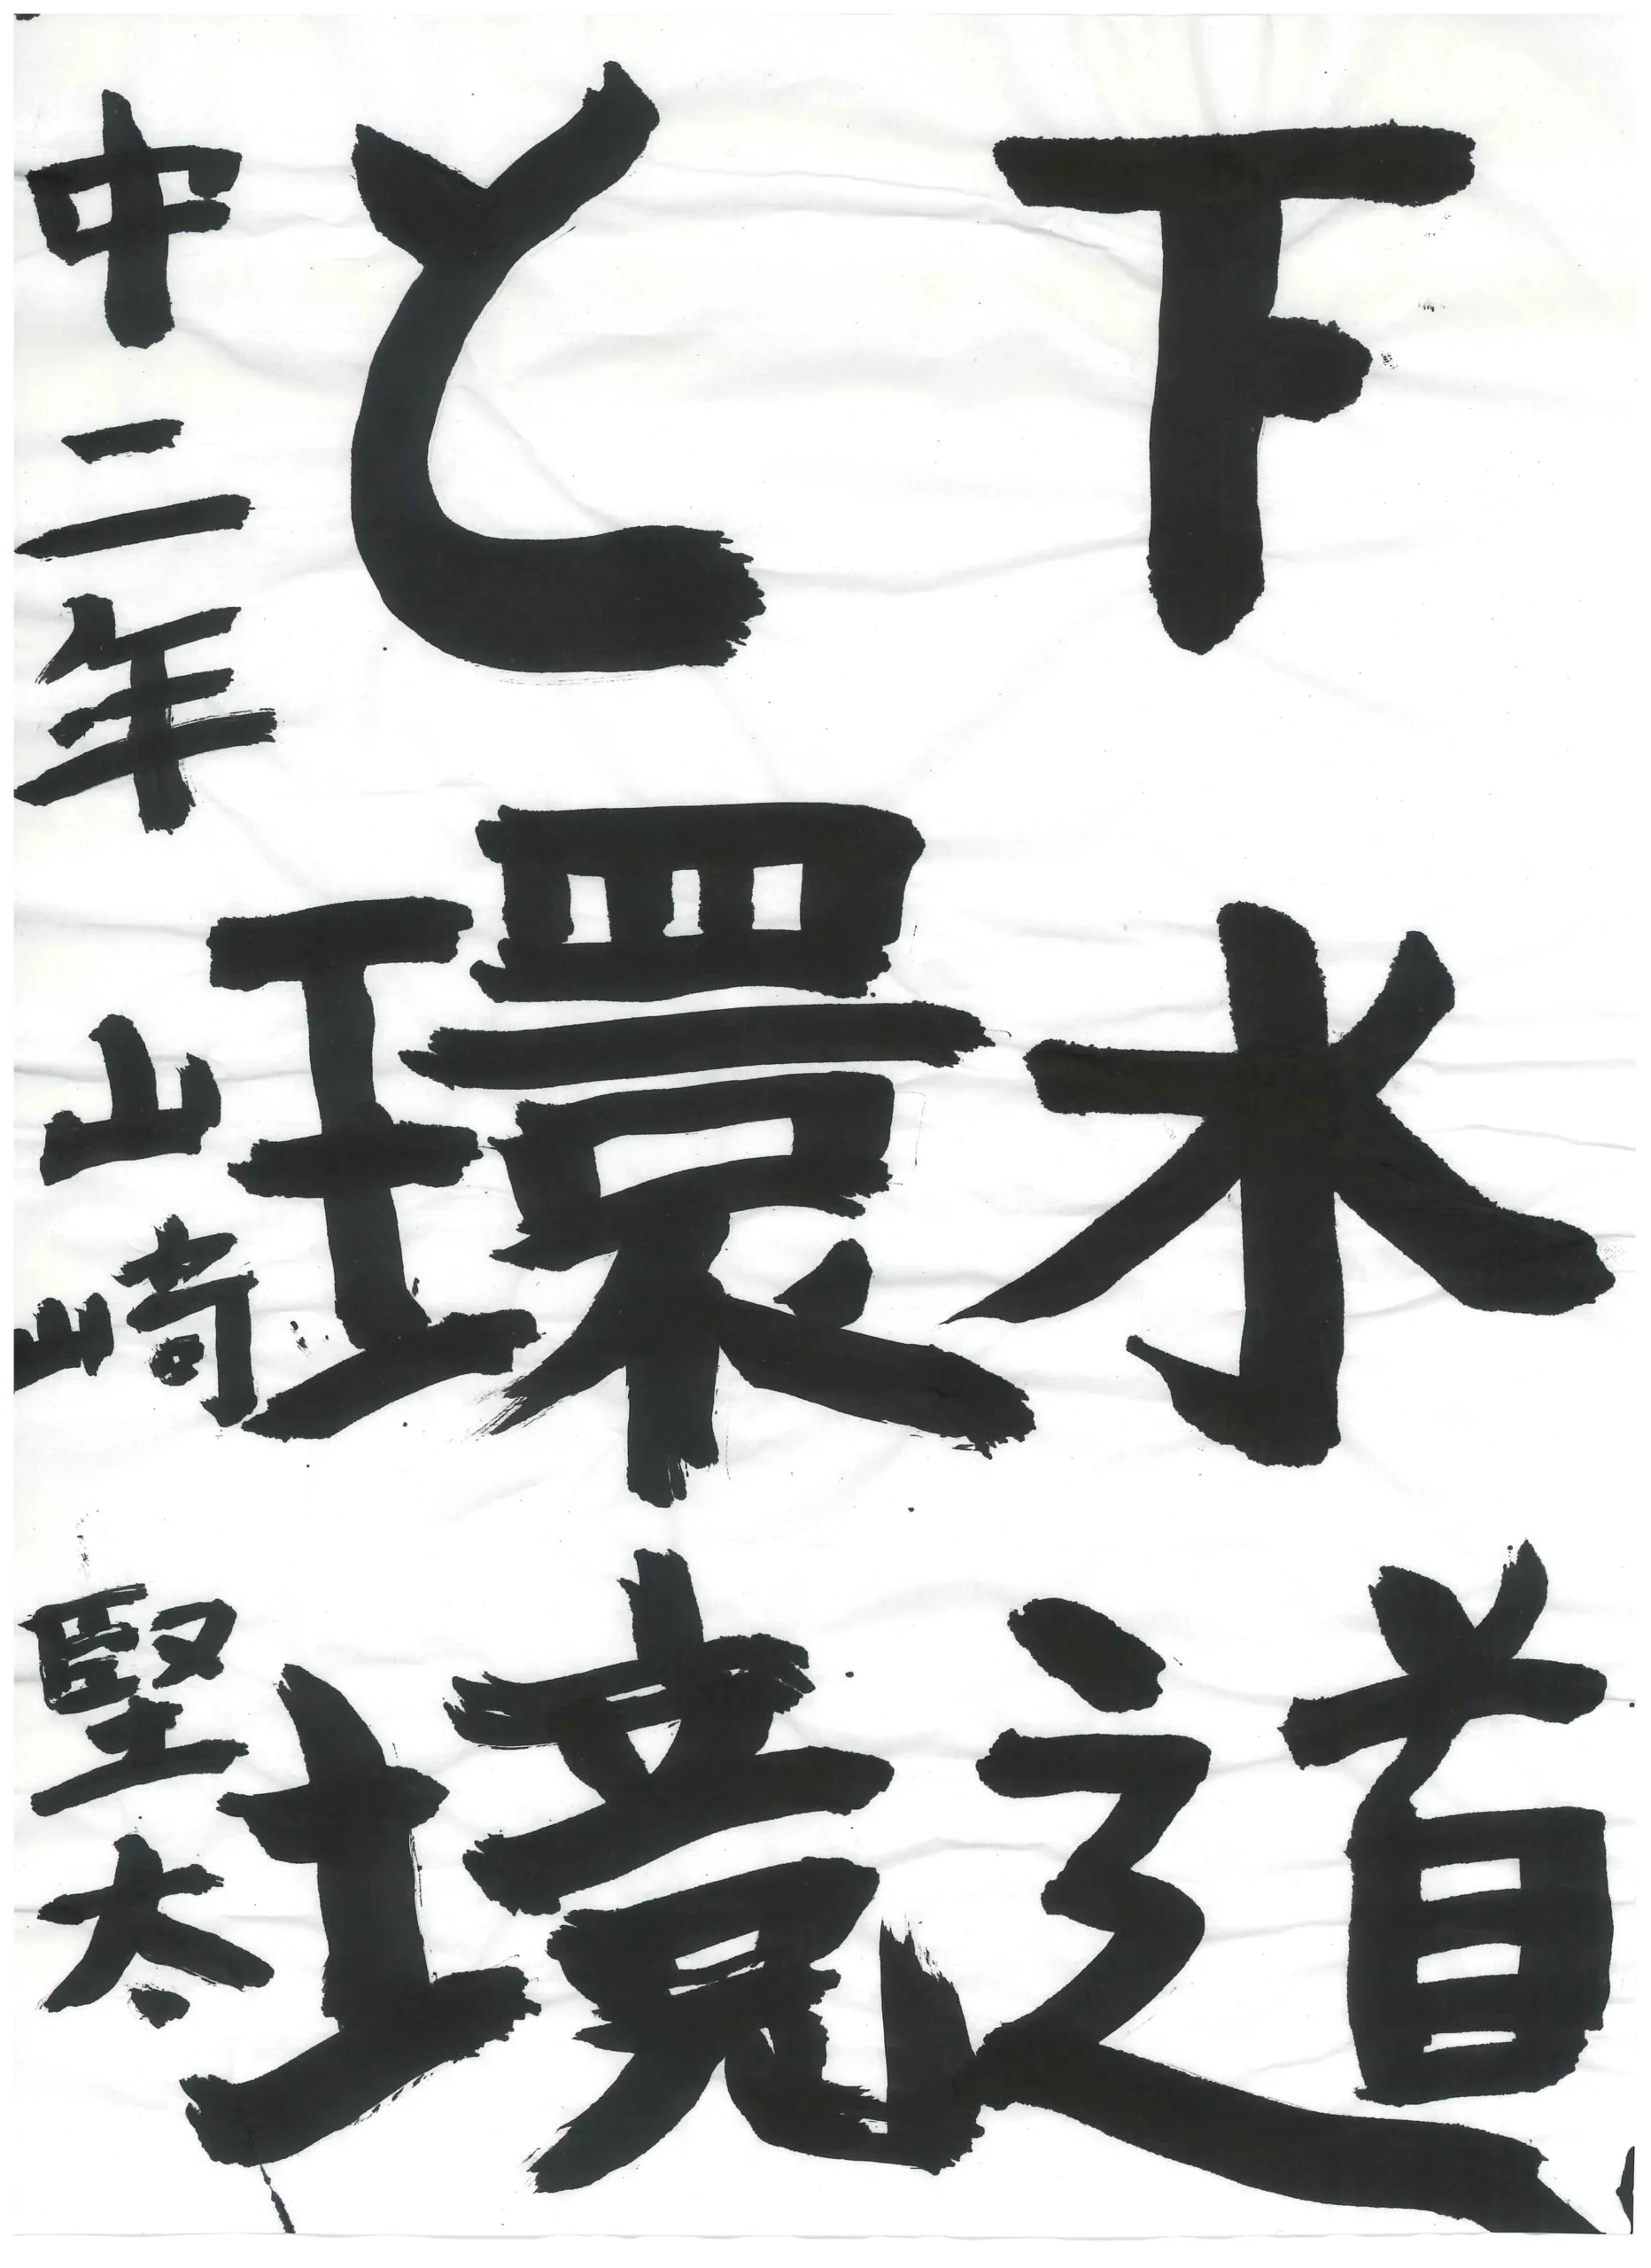 下水道
と環境
中二年 山崎 堅太